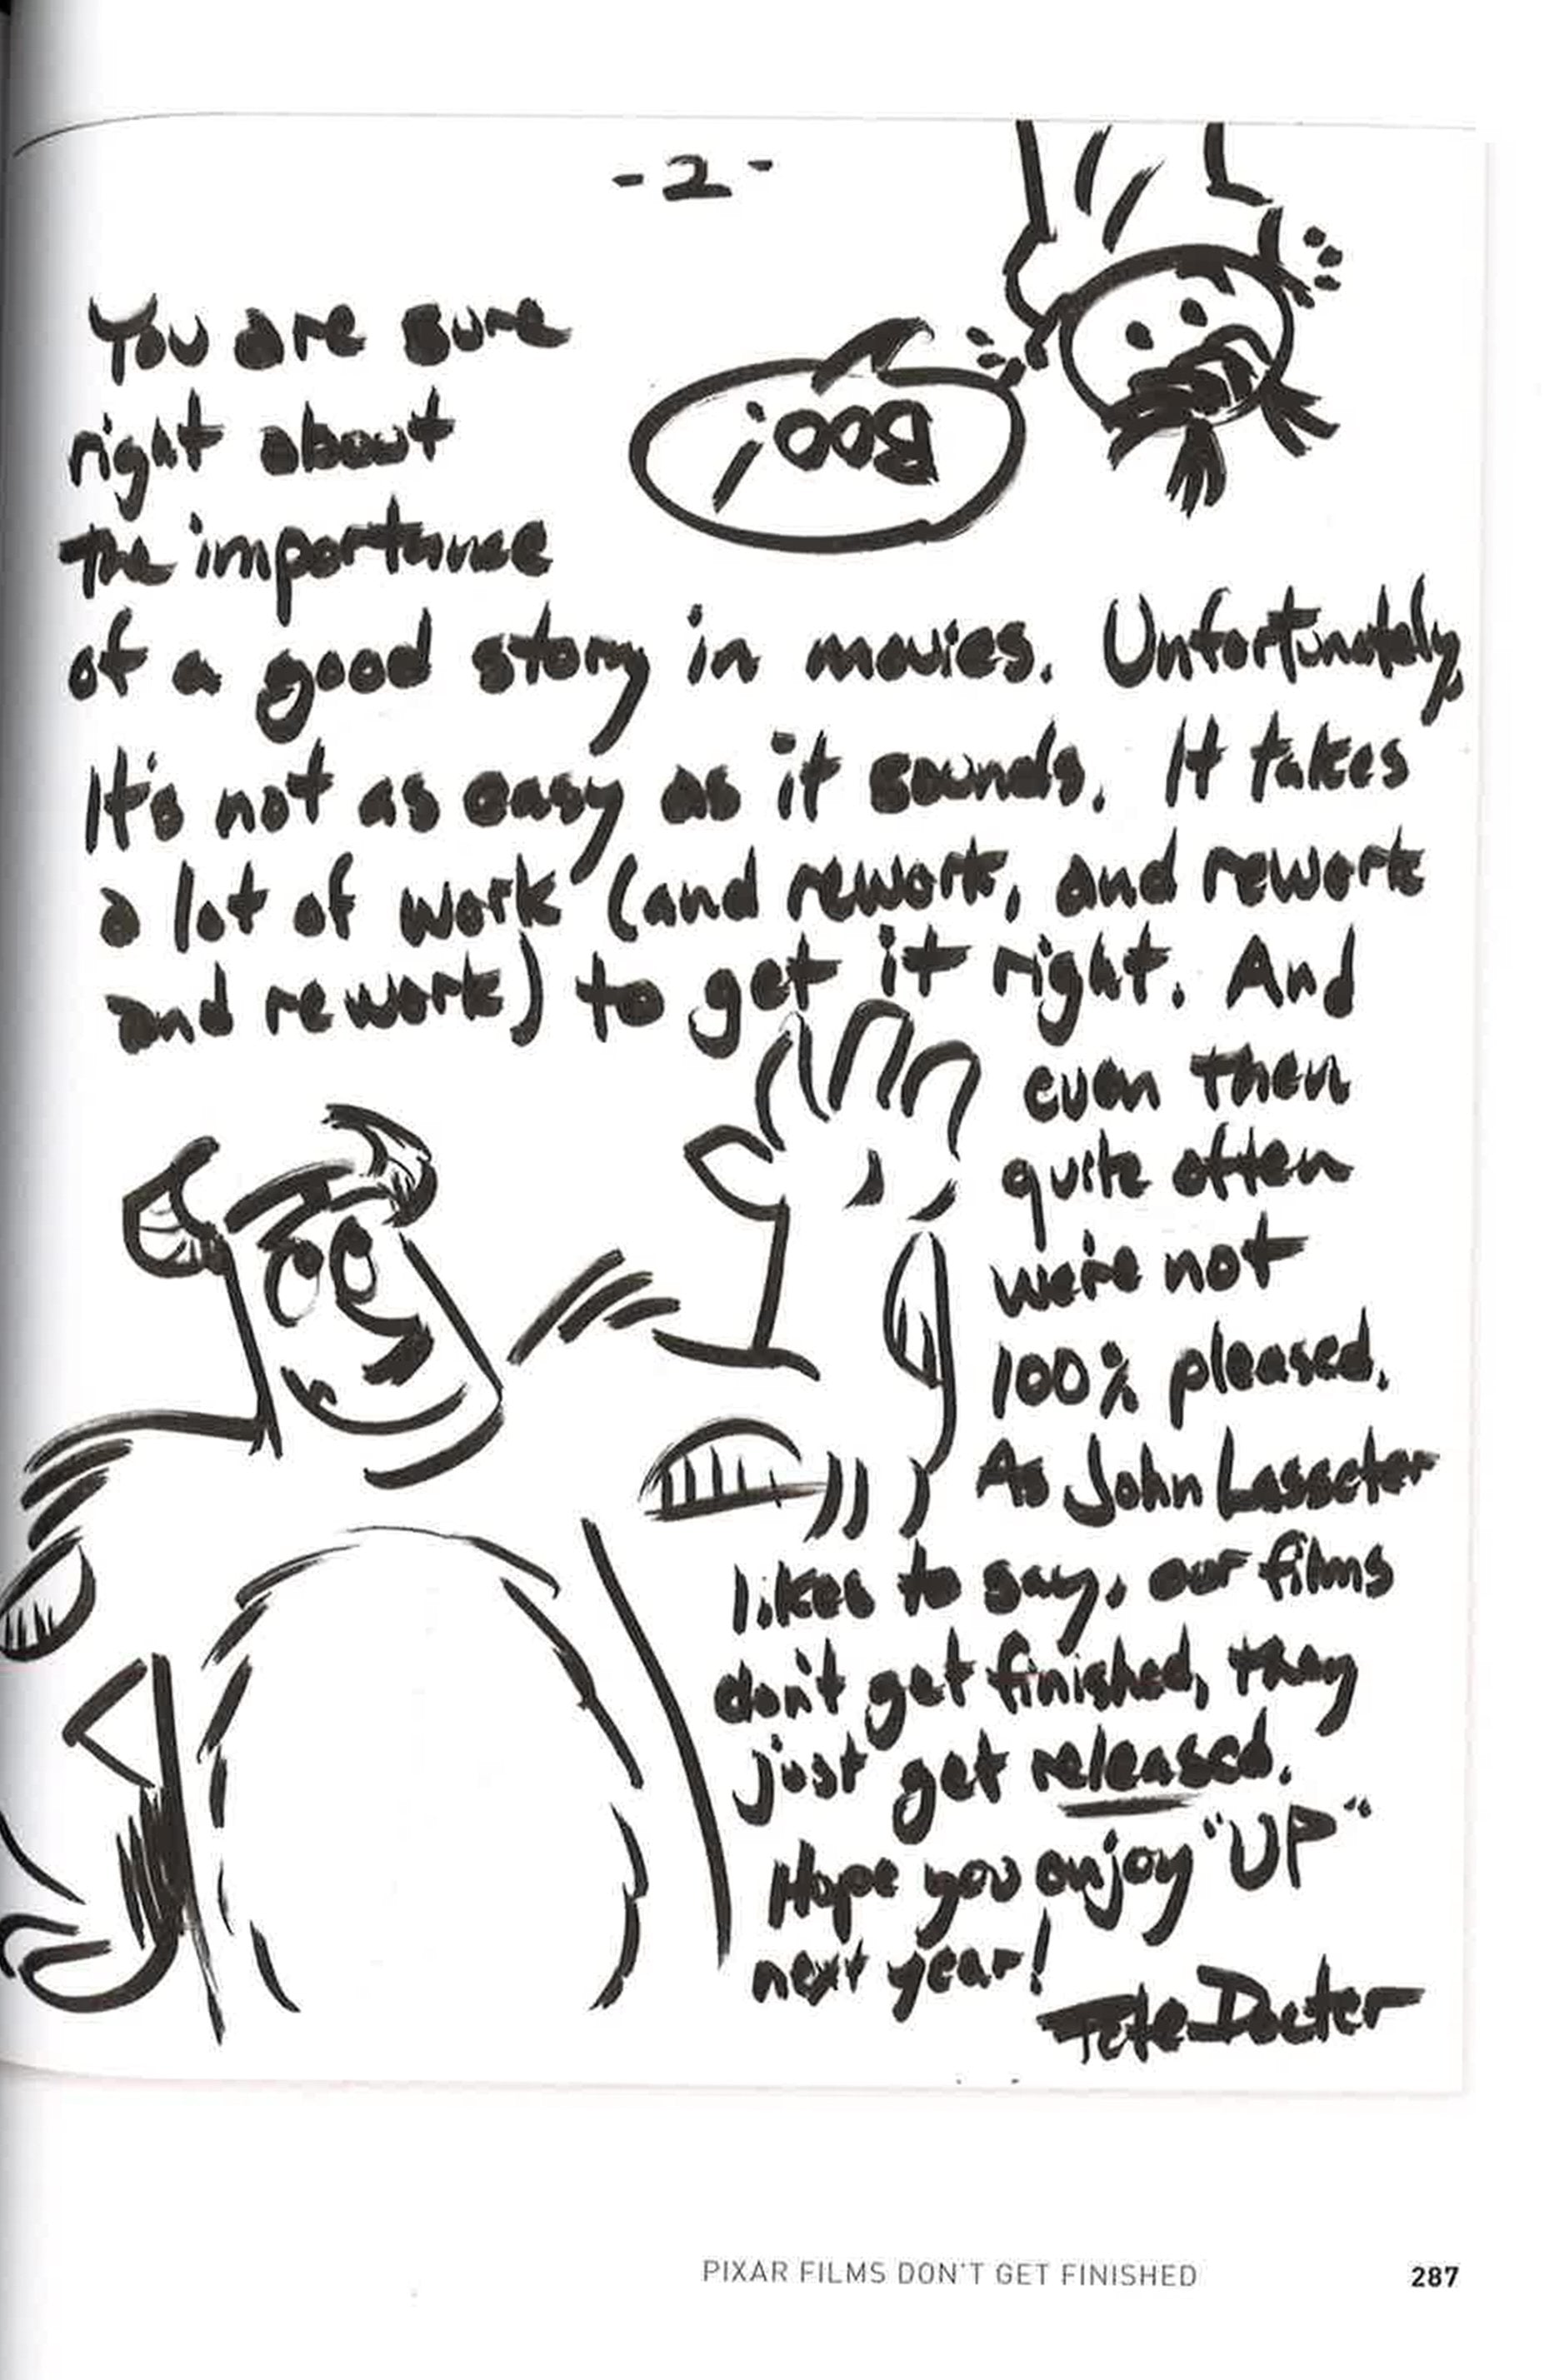 -2-
You are sure
right about
the importance
Boo!
of a good story in movies. Unfortunately,
It's not as easy as it sounds. It takes
a lot of work (and rework, and rework
and rework) to get it right. And
even then
quite often
we're not
100% pleased.
As John Lasseter
likes to say, our films
don't get finished, they
just get released.
Hope you enjoy "UP"
next year!
Pete Docter
PIXAR FILMS DON'T GET FINISHED 287